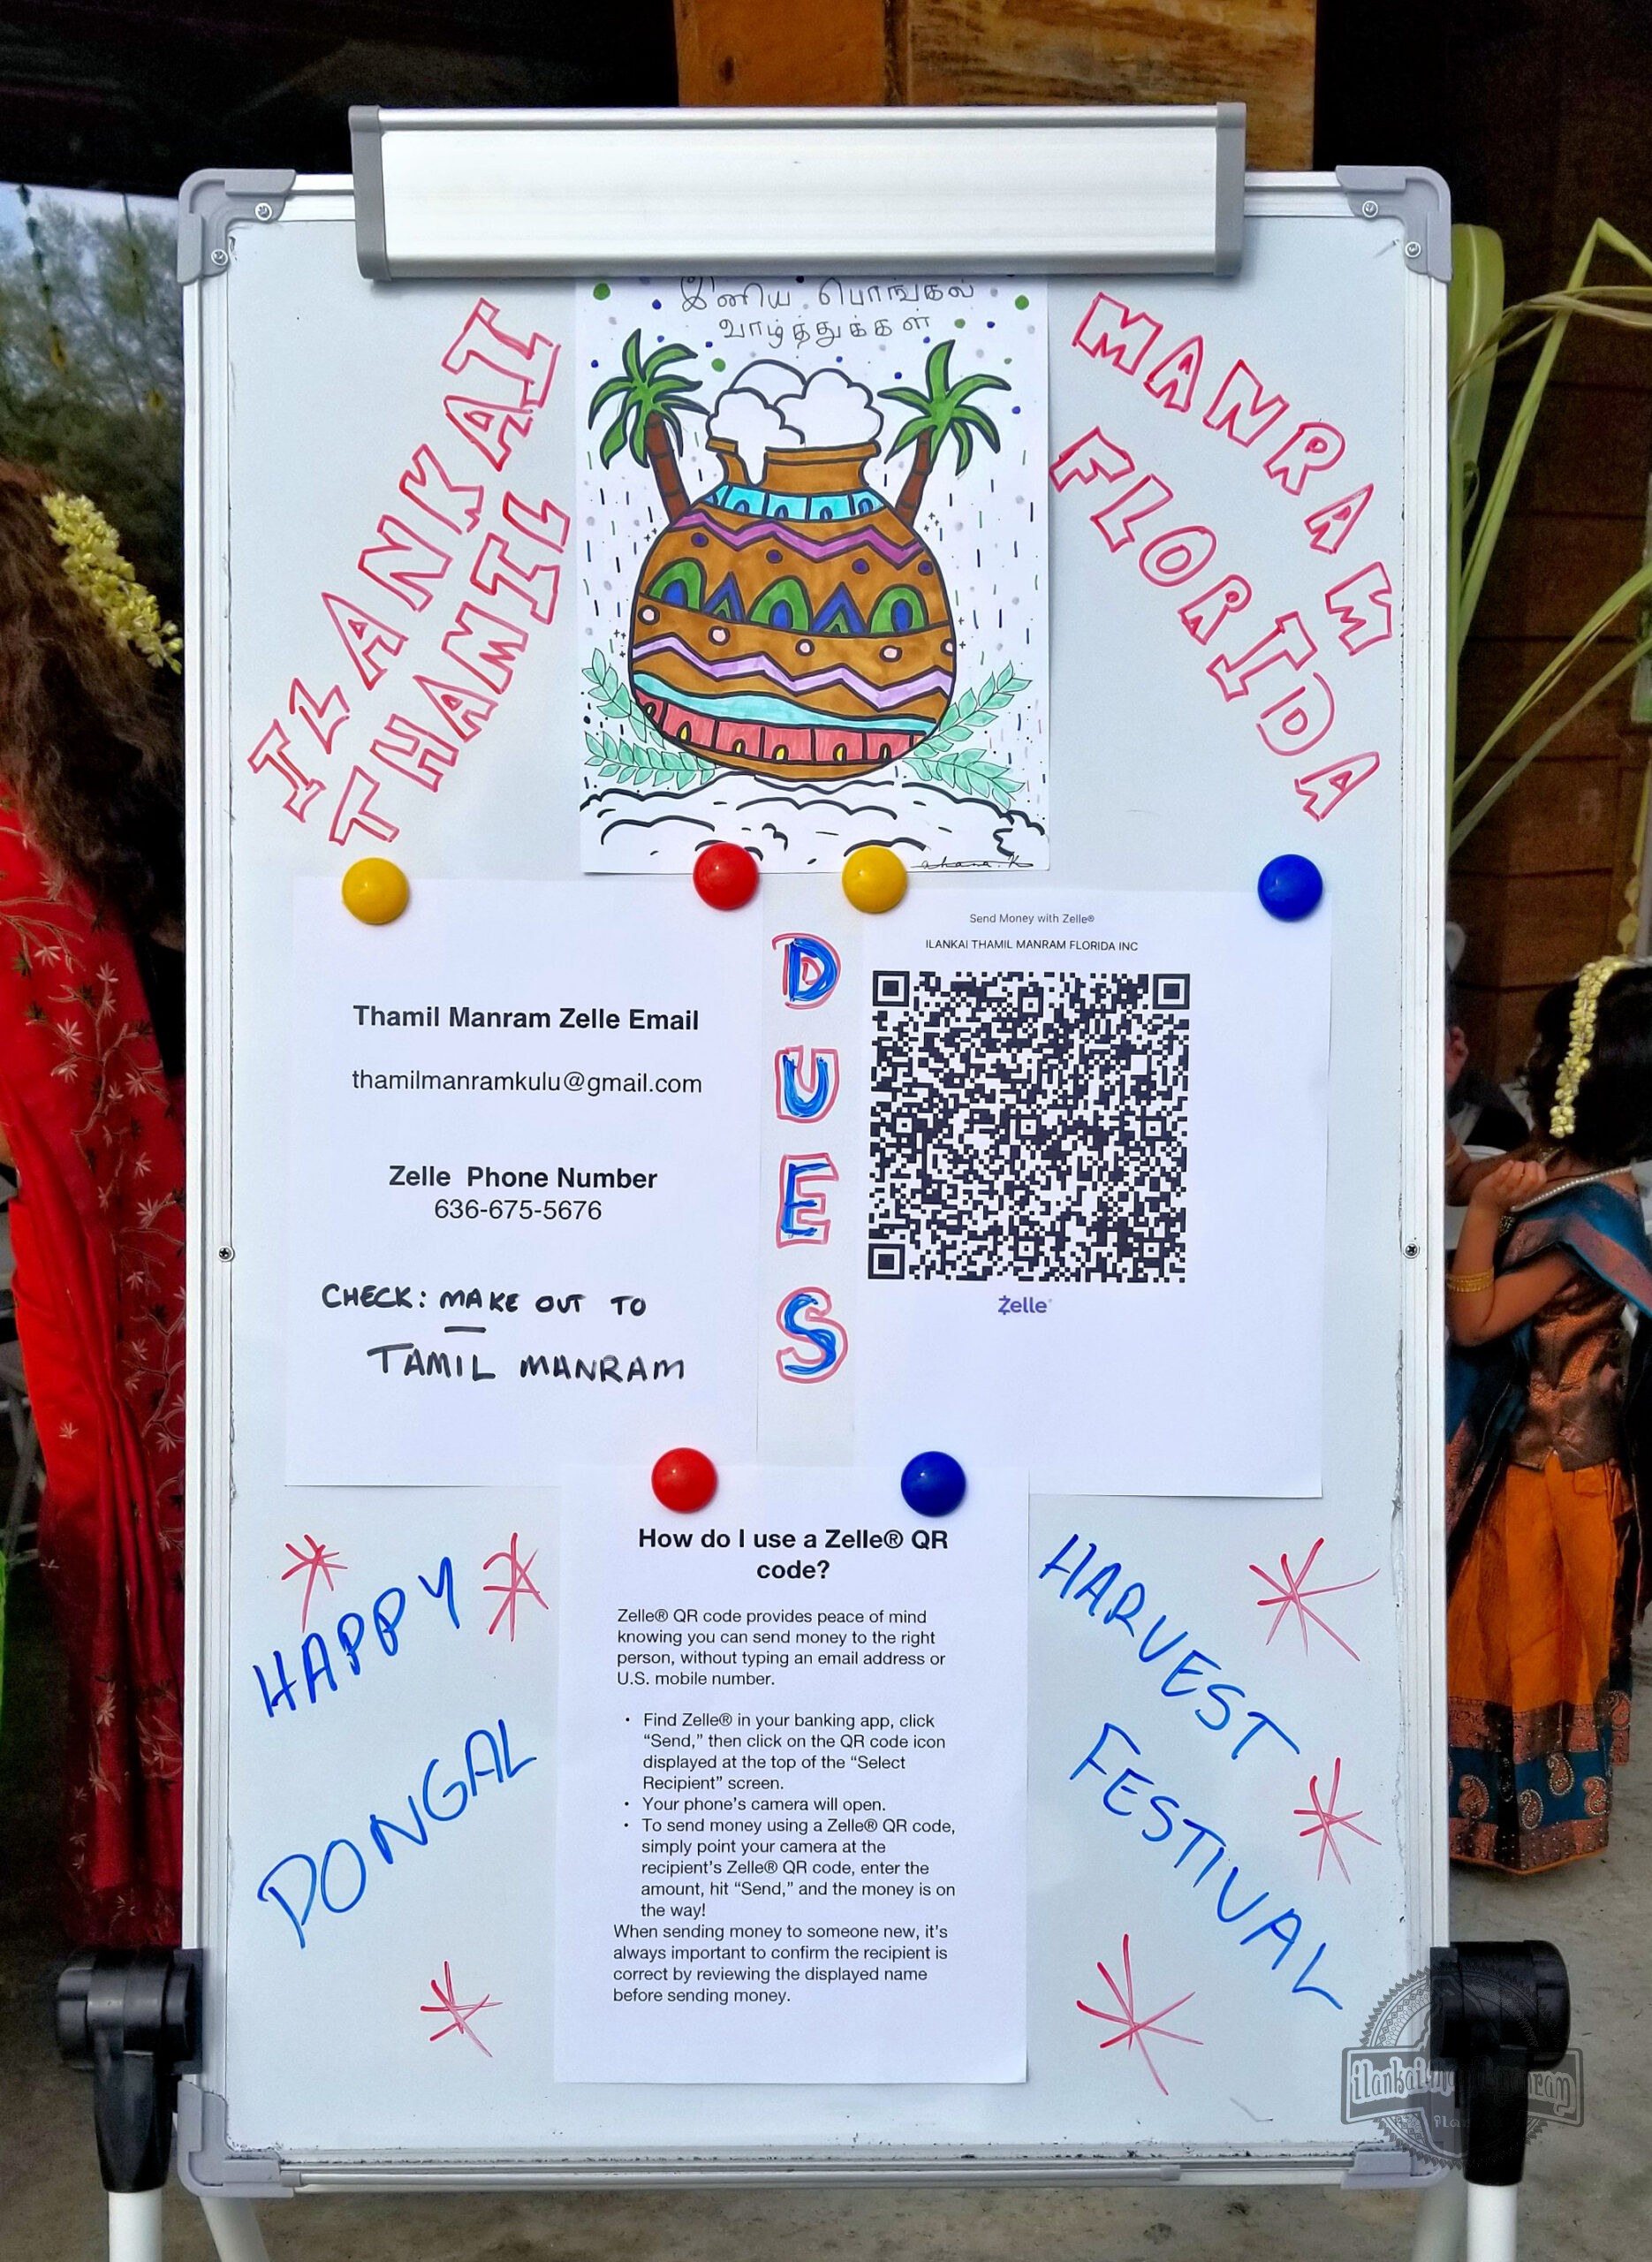 இனிய பொங்கல்
வாழ்த்துக்கள்
ILANKAI
THAMIL
MANRAM
FLORIDA
ahana.K
Thamil Manram Zelle Email
thamilmanramkulu@gmail.com
Zelle Phone Number
636-675-5676
CHECK: MAKE OUT TO
TAMIL MANRAM
DUES
Send Money with Zelle®
ILANKAI THAMIL MANRAM FLORIDA INC
Zelle®
How do I use a Zelle® QR
code?
Zelle® QR code provides peace of mind
knowing you can send money to the right
person, without typing an email address or
U.S. mobile number.
• Find Zelle® in your banking app, click
“Send,” then click on the QR code icon
displayed at the top of the “Select
Recipient” screen.
• Your phone’s camera will open.
• To send money using a Zelle® QR code,
simply point your camera at the
recipient’s Zelle® QR code, enter the
amount, hit “Send,” and the money is on
the way!
When sending money to someone new, it’s
always important to confirm the recipient is
correct by reviewing the displayed name
before sending money.
HAPPY
PONGAL
HARVEST
FESTIVAL
ilankai